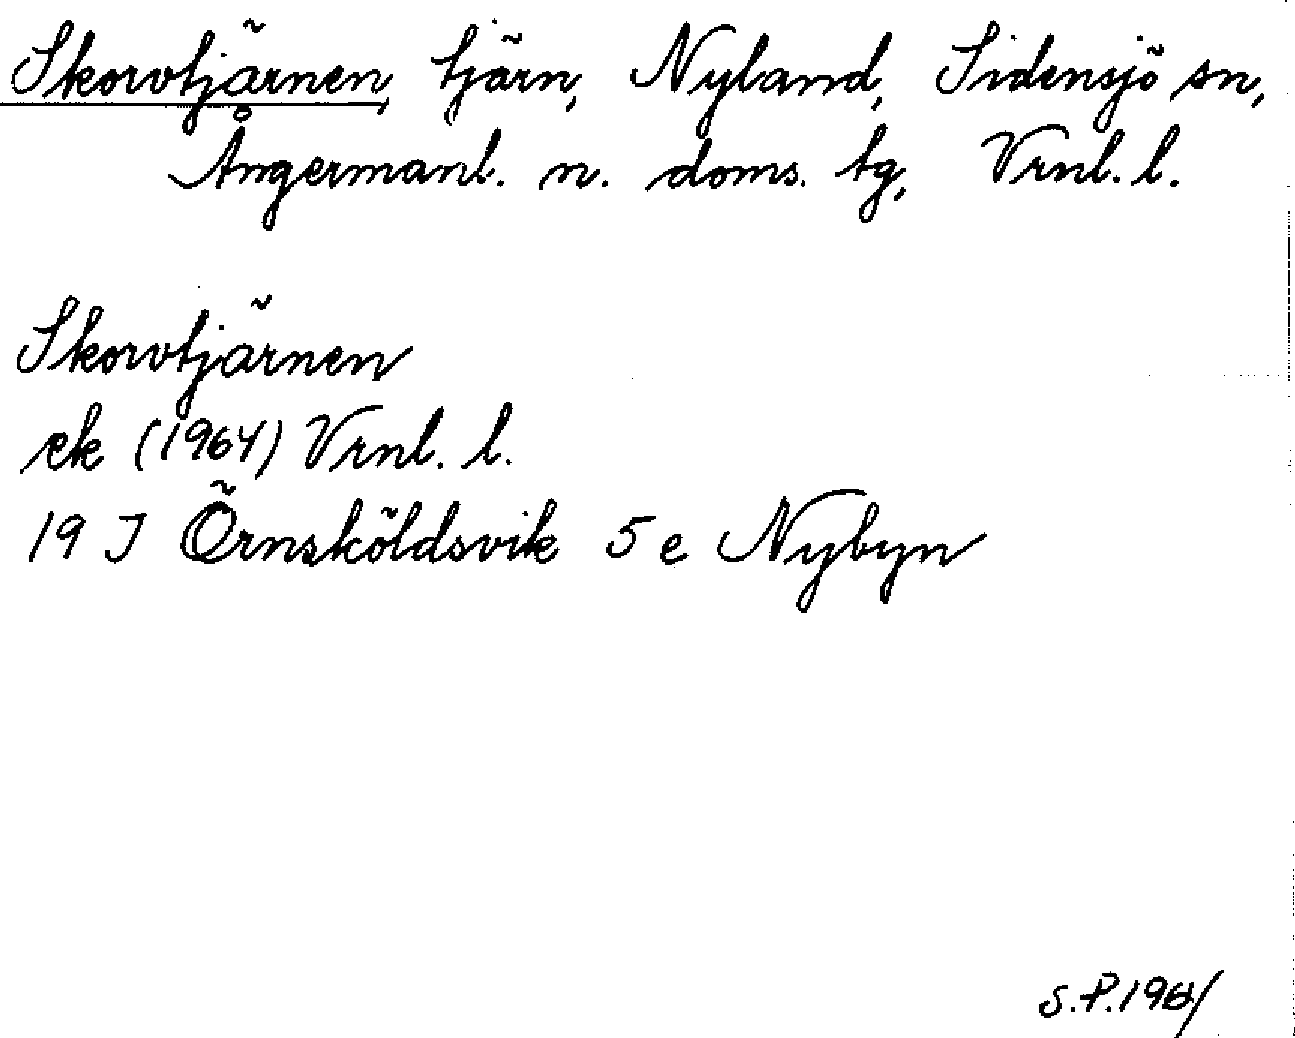 Skorvtjärnen, tjärn, Nyland, Sidensjö sn,
Ångermanl. n. doms. tg, Vrnl. l.
Skorvtjärnen
ek (1964) Vrnl. l.
19 J Örnsköldsvik 5 e Nybyn
S.P.